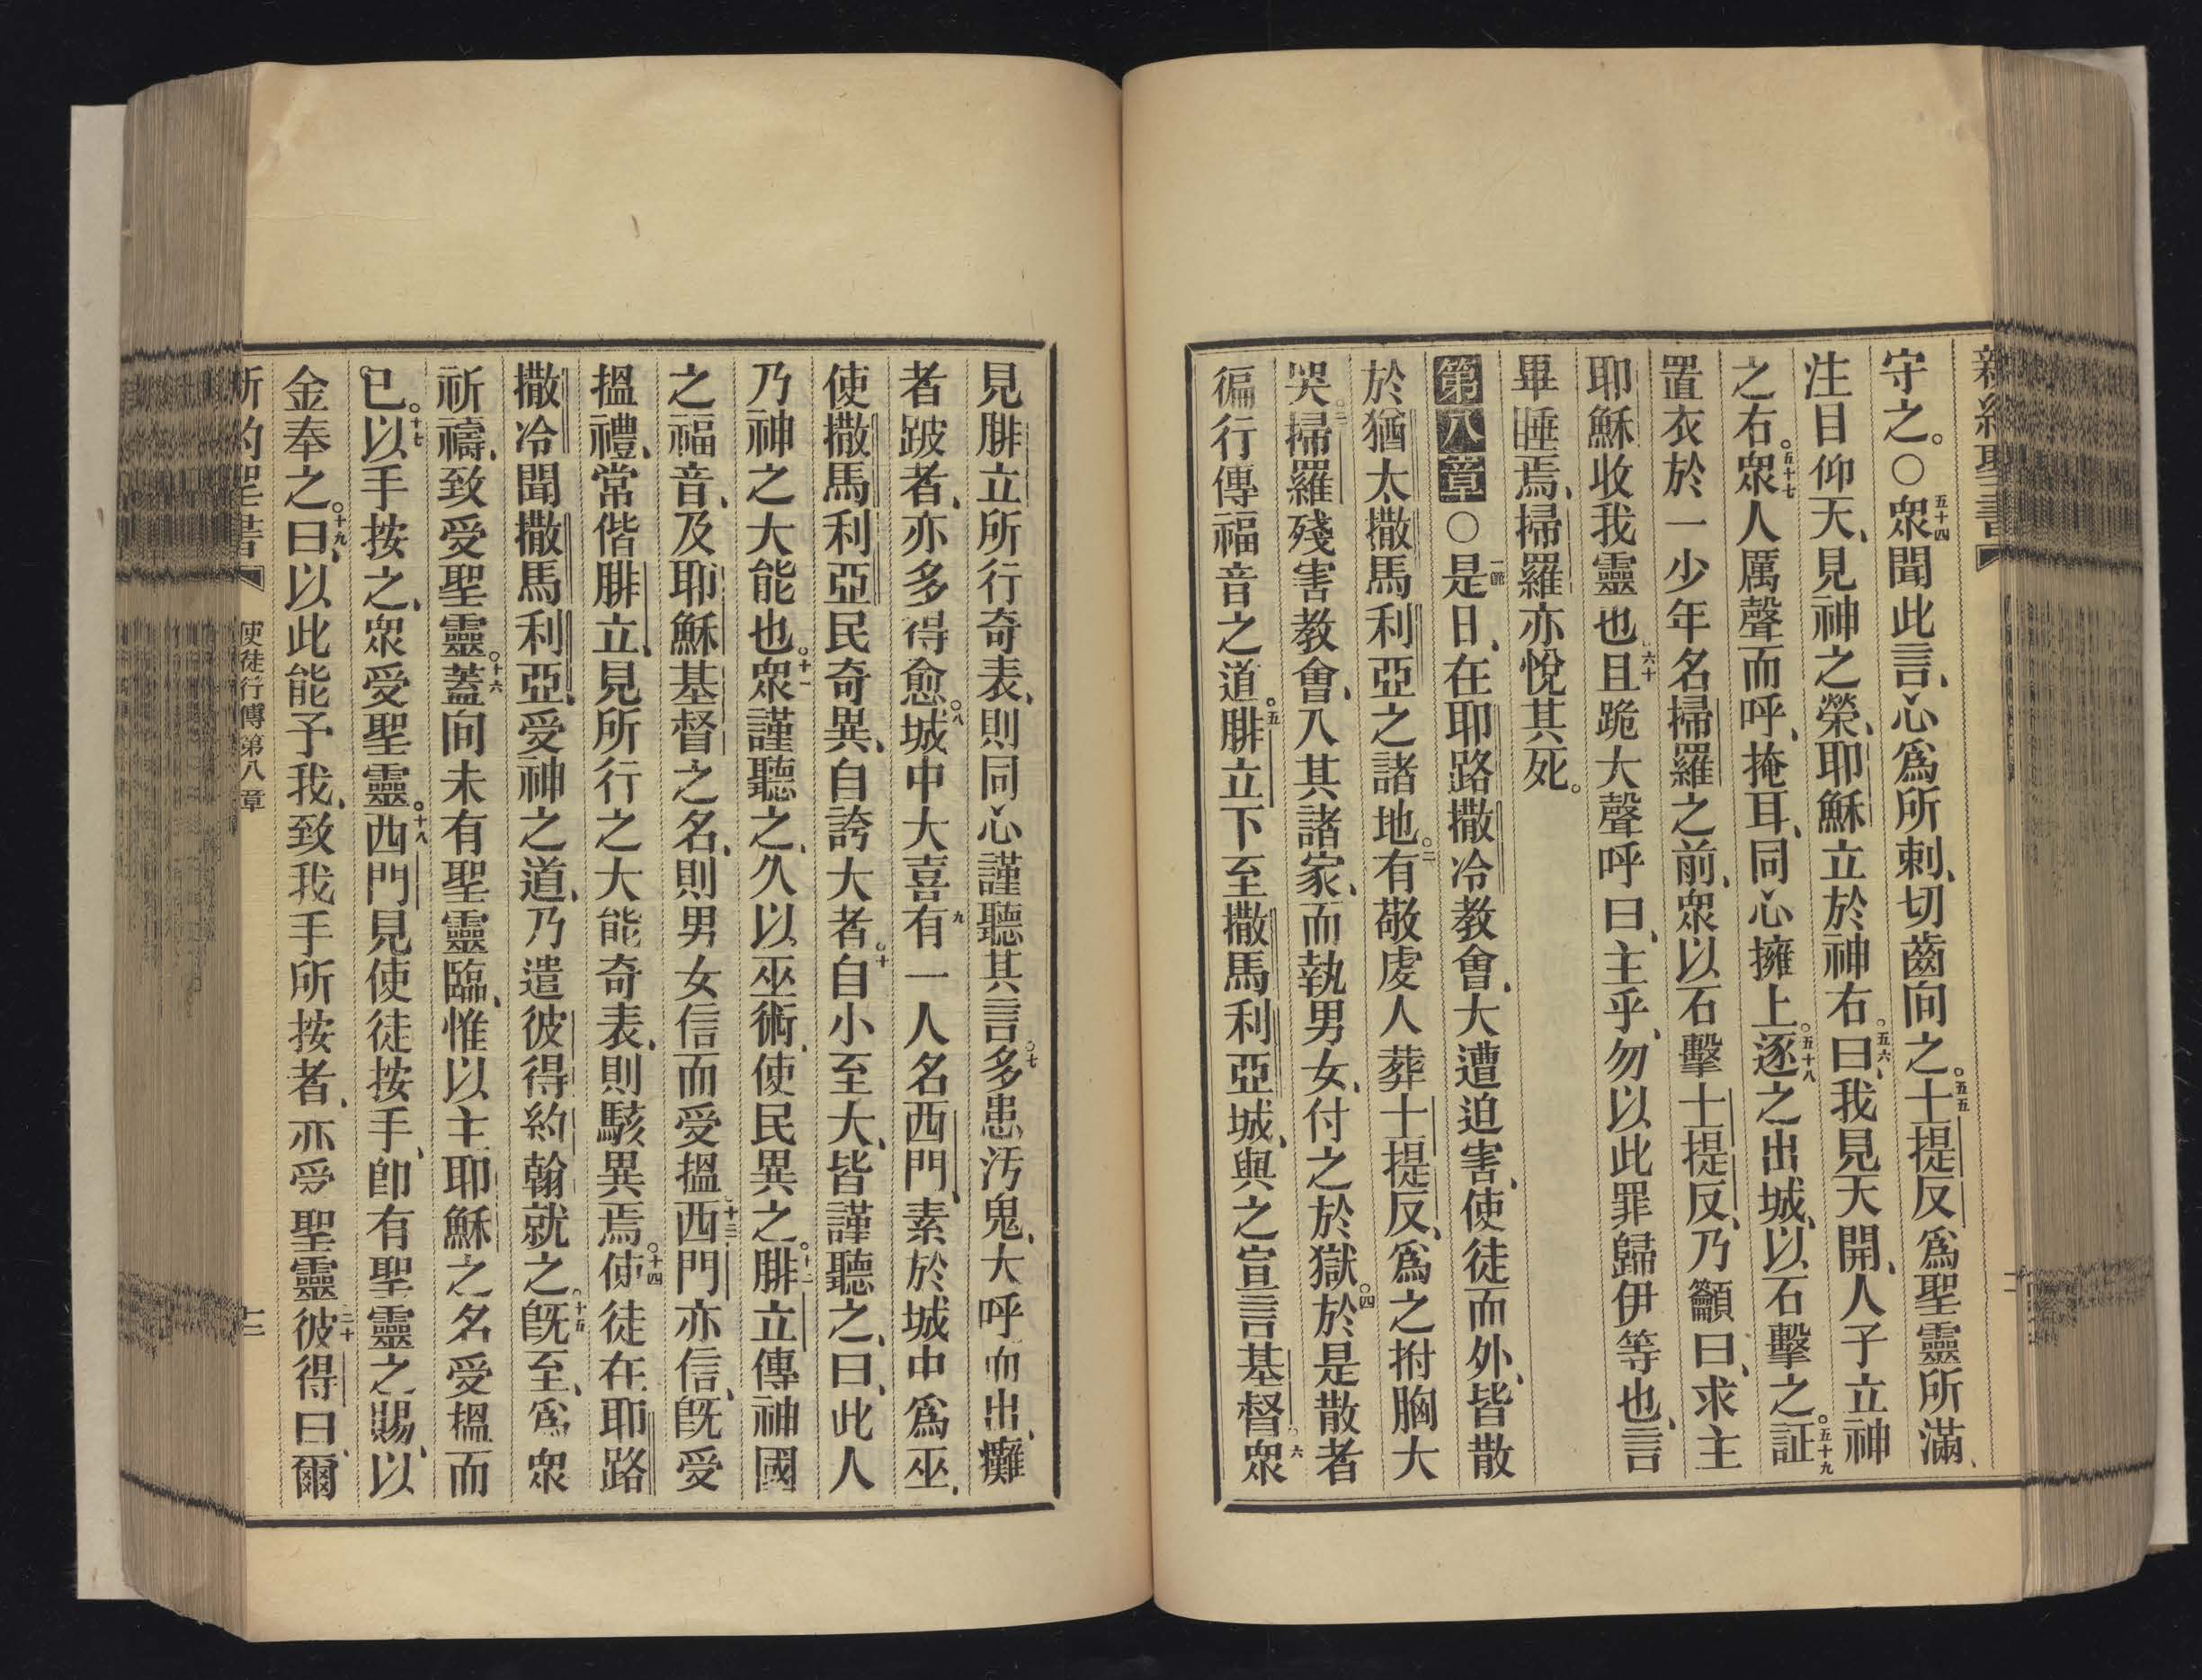 新約聖書
守之。○五十四衆聞此言、心爲所刺、切齒向之。五五士提反爲聖靈所滿、
注目仰天、見神之榮、耶穌立於神右。五六曰、我見天開、人子立神
之右。五十七衆人厲聲而呼、掩耳、同心擁上。五十八逐之出城、以石擊之。五十九証
置衣於一少年名掃羅之前、衆以石擊士提反、乃籲曰、求主
耶穌收我靈也。六十且跪大聲呼曰、主乎、勿以此罪歸伊等也、言
畢睡焉、掃羅亦悅其死。
第八章○一節是日、在耶路撒冷教會、大遭迫害、使徒而外、皆散
於猶太撒馬利亞之諸地。二有敬虔人葬士提反、爲之拊胸大
哭。三掃羅殘害教會、入其諸家、而執男女、付之於獄。四於是散者
徧行傳福音之道。五腓立下至撒馬利亞城、與之宣言基督。六衆
見腓立所行奇表、則同心謹聽其言。七多患汚鬼、大呼而出、癱
者跛者、亦多得愈。八城中大喜九有一人名西門、素於城中爲巫、
使撒馬利亞民奇異、自誇大者。十自小至大、皆謹聽之、曰、此人
乃神之大能也。十一衆謹聽之、久以巫術、使民異之。十二腓立傳神國
之福音、及耶穌基督之名、則男女信而受搵。十三西門亦信、既受
搵禮、常偕腓立、見所行之大能奇表、則駭異焉。十四使徒在耶路
撒冷聞撒馬利亞、受神之道、乃遣彼得約翰就之。十五既至、爲衆
祈禱、致受聖靈。十六蓋向未有聖靈臨、惟以主耶穌之名受搵而
已。十七以手按之、衆受聖靈。十八西門見使徒按手、卽有聖靈之賜、以
金奉之。十九曰、以此能予我、致我手所按者、亦受聖靈二十彼得曰、爾
新約聖書 使徒行傳第八章 十二